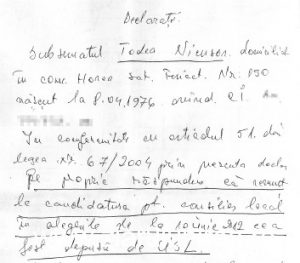 Declarație
Subsematul Todea Nicusor domiciliat
în com. Horea sat. Fericet. Nr. 890
născut la 8.04.1976 având CI
În conformitate cu articolul 51. din
legea nr. 67/2004 prin prezenta declar
pe propria răspundere că renunț
la candidatura pt. consilier local
în alegerile de la iunie 2012 cea
fost depusă de USL.